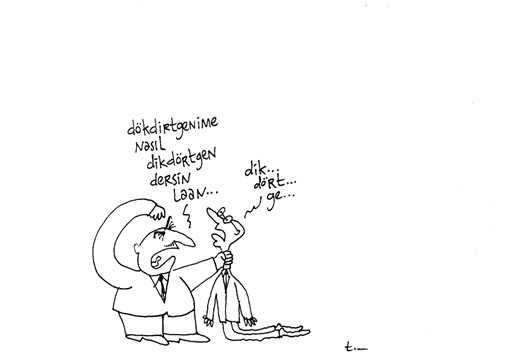 dökdirtgenime
nasıl
dikdörtgen
dersin
laan...
dik...
dört...
ge...
t.-